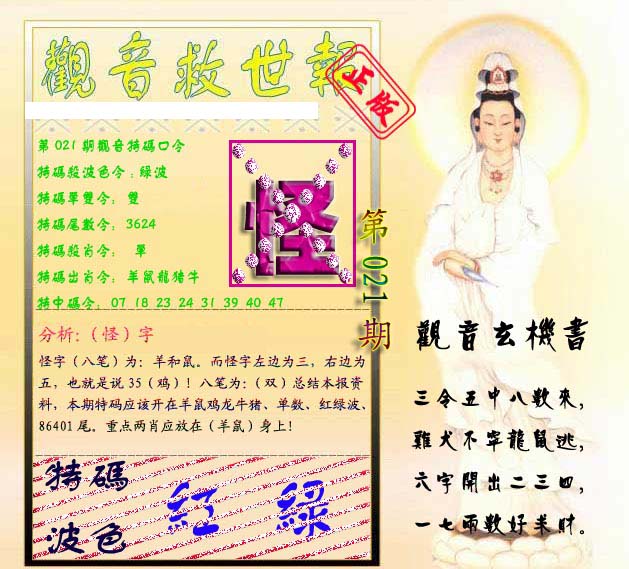 觀音救世報
正版
第021期觀音特碼口令
特碼殺波色令：綠波
特碼單雙令： 雙
特碼尾數令： 3624
特碼殺肖令： 單
特碼出肖令： 羊鼠龍猪牛
特中碼令： 07 18 23 24 31 39 40 47
怪
第021期
分析:（怪）字
怪字（八笔）为：羊和鼠。而怪字左边为三，右边为
五，也就是说 35（鸡）！八笔为：（双）总结本报资
料，本期特码应该开在羊鼠鸡龙牛猪、单数、红绿波、
86401 尾。重点两肖应放在（羊鼠）身上！
特碼
波色
紅 綠
觀音玄機書
三令五中八數來，
雞犬不寧龍鼠逃，
六字開出二三四，
一七兩數好求財。